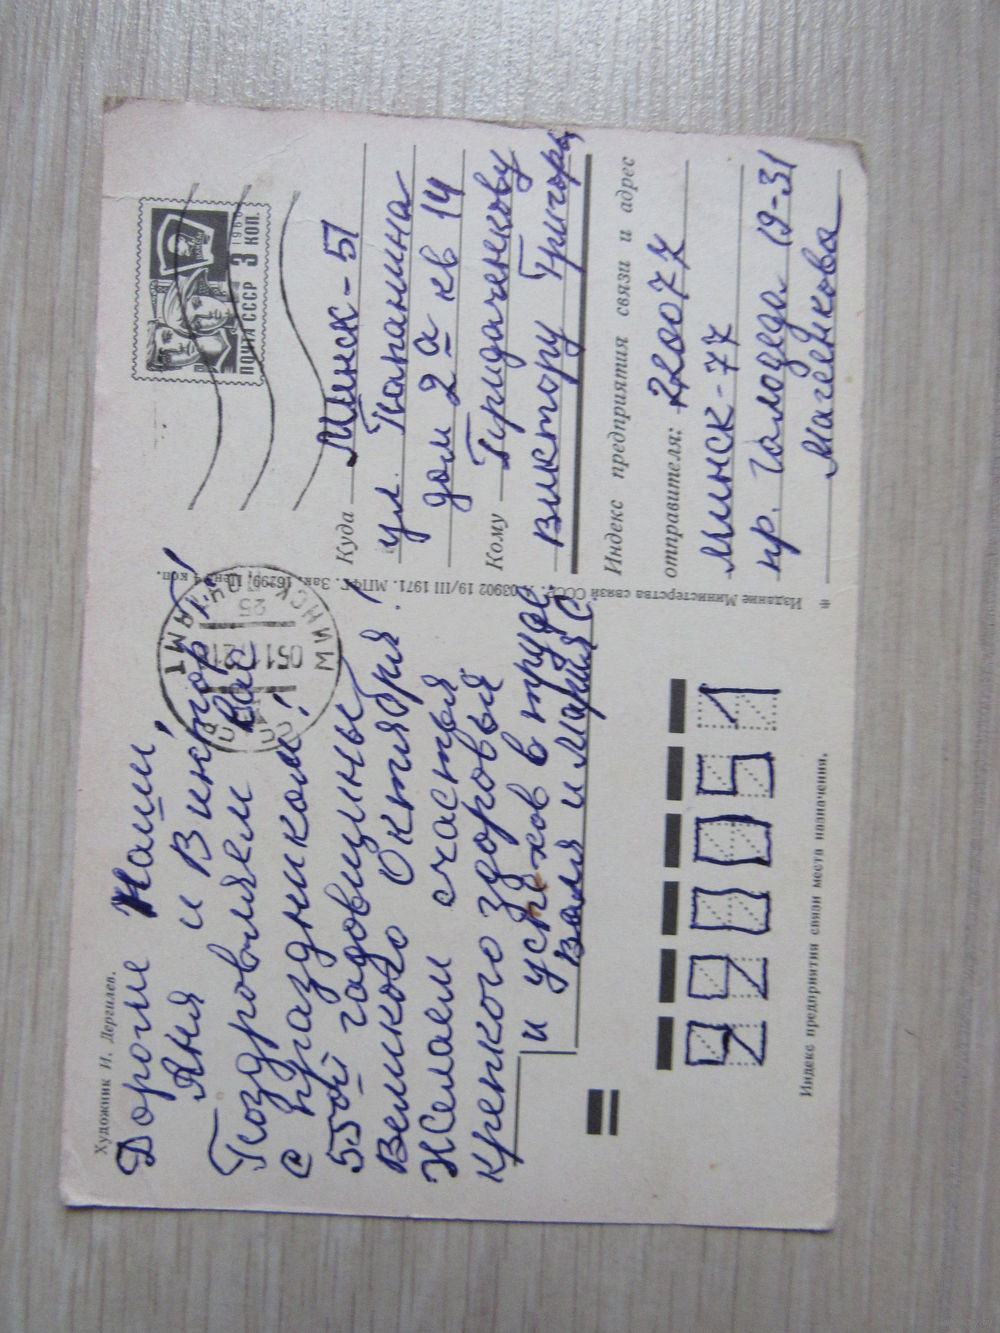 Художник И. Дергилев.
Дорогие наши,
Аня и Виктор!
Поздровляем вас
с праздником!
55ой гадовщины
Великого Октября!
Желаем счастья
крепкого здоровья
и успехов в труде
Валя и Мария С
ПОЧТА СССР 3 КОП.
1966
МИНСК
Куда Минск-51
ул. Папанина
дом 2а кв 14
Кому Придаченкову
Виктору Григорь
Индекс предприятия связи и адрес
отправителя: 220077
Минск-77
пр. Галодеда 19-31
Магенкова
Издание Министерства связи СССР. 03902 19/III 1971. МПФГ. Зак. 16299. Цена 4 коп.
220051
Индекс предприятия связи места назначения.